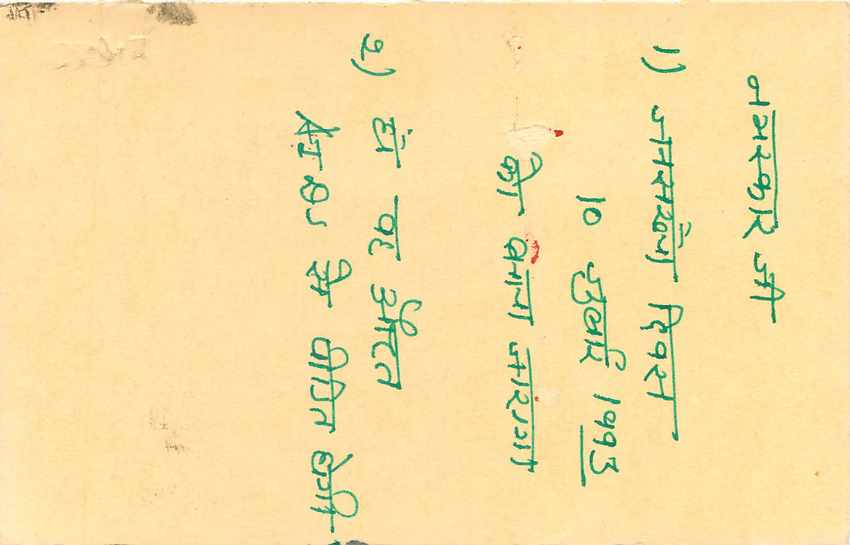 नमस्कार जी
1) जनसंख्या दिवस
10 जुलाई 1993
को मनाया जाएगा
२) हां यह औरत
AIDS से पीडित होगी